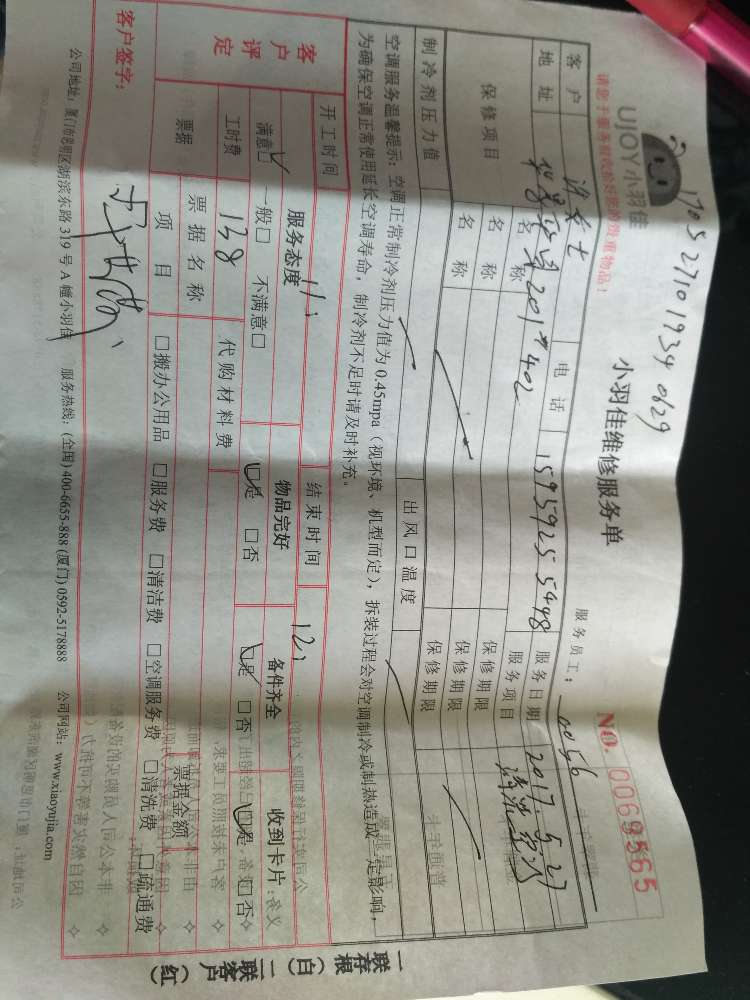 1705 2710 1934 0829
UJOY小羽佳
请您于服务前收拾好您的贵重物品!
小羽佳维修服务单
NO. 0069565
服务员工: 0056
客户 许女士 电话 15959255448 服务日期 2017.5.27
地址 201#402 服务项目 清洗空调
保修项目 名称 保修期限
名称 保修期限
名称 保修期限
制冷剂压力值 出风口温度
空调服务温馨提示:空调正常制冷剂压力值为0.45mpa(视环境、机型而定),拆装过程会对空调制冷或制热造成一定影响,
为确保空调正常使用延长空调寿命,制冷剂不足时请及时补充。
开工时间 11: 结束时间 12:
客户评定 服务态度 物品完好 备件齐全 收到卡片
满意☑ 一般□ 不满意□ ☑是 □否 ☑是 □否 ☑是 □否
工时费 138 代购材料费
票据 票据名称 票据金额
项目 □搬办公用品 □服务费 □清洁费 □空调服务费 □清洗费 □疏通费
客户签字:
公司地址:厦门市思明区湖滨东路319号A幢小羽佳 服务热线:(全国)400-6655-888 (厦门)0592-5178888 公司网站:www.xiaoyujia.com
一联存根(白)二联客户(红)